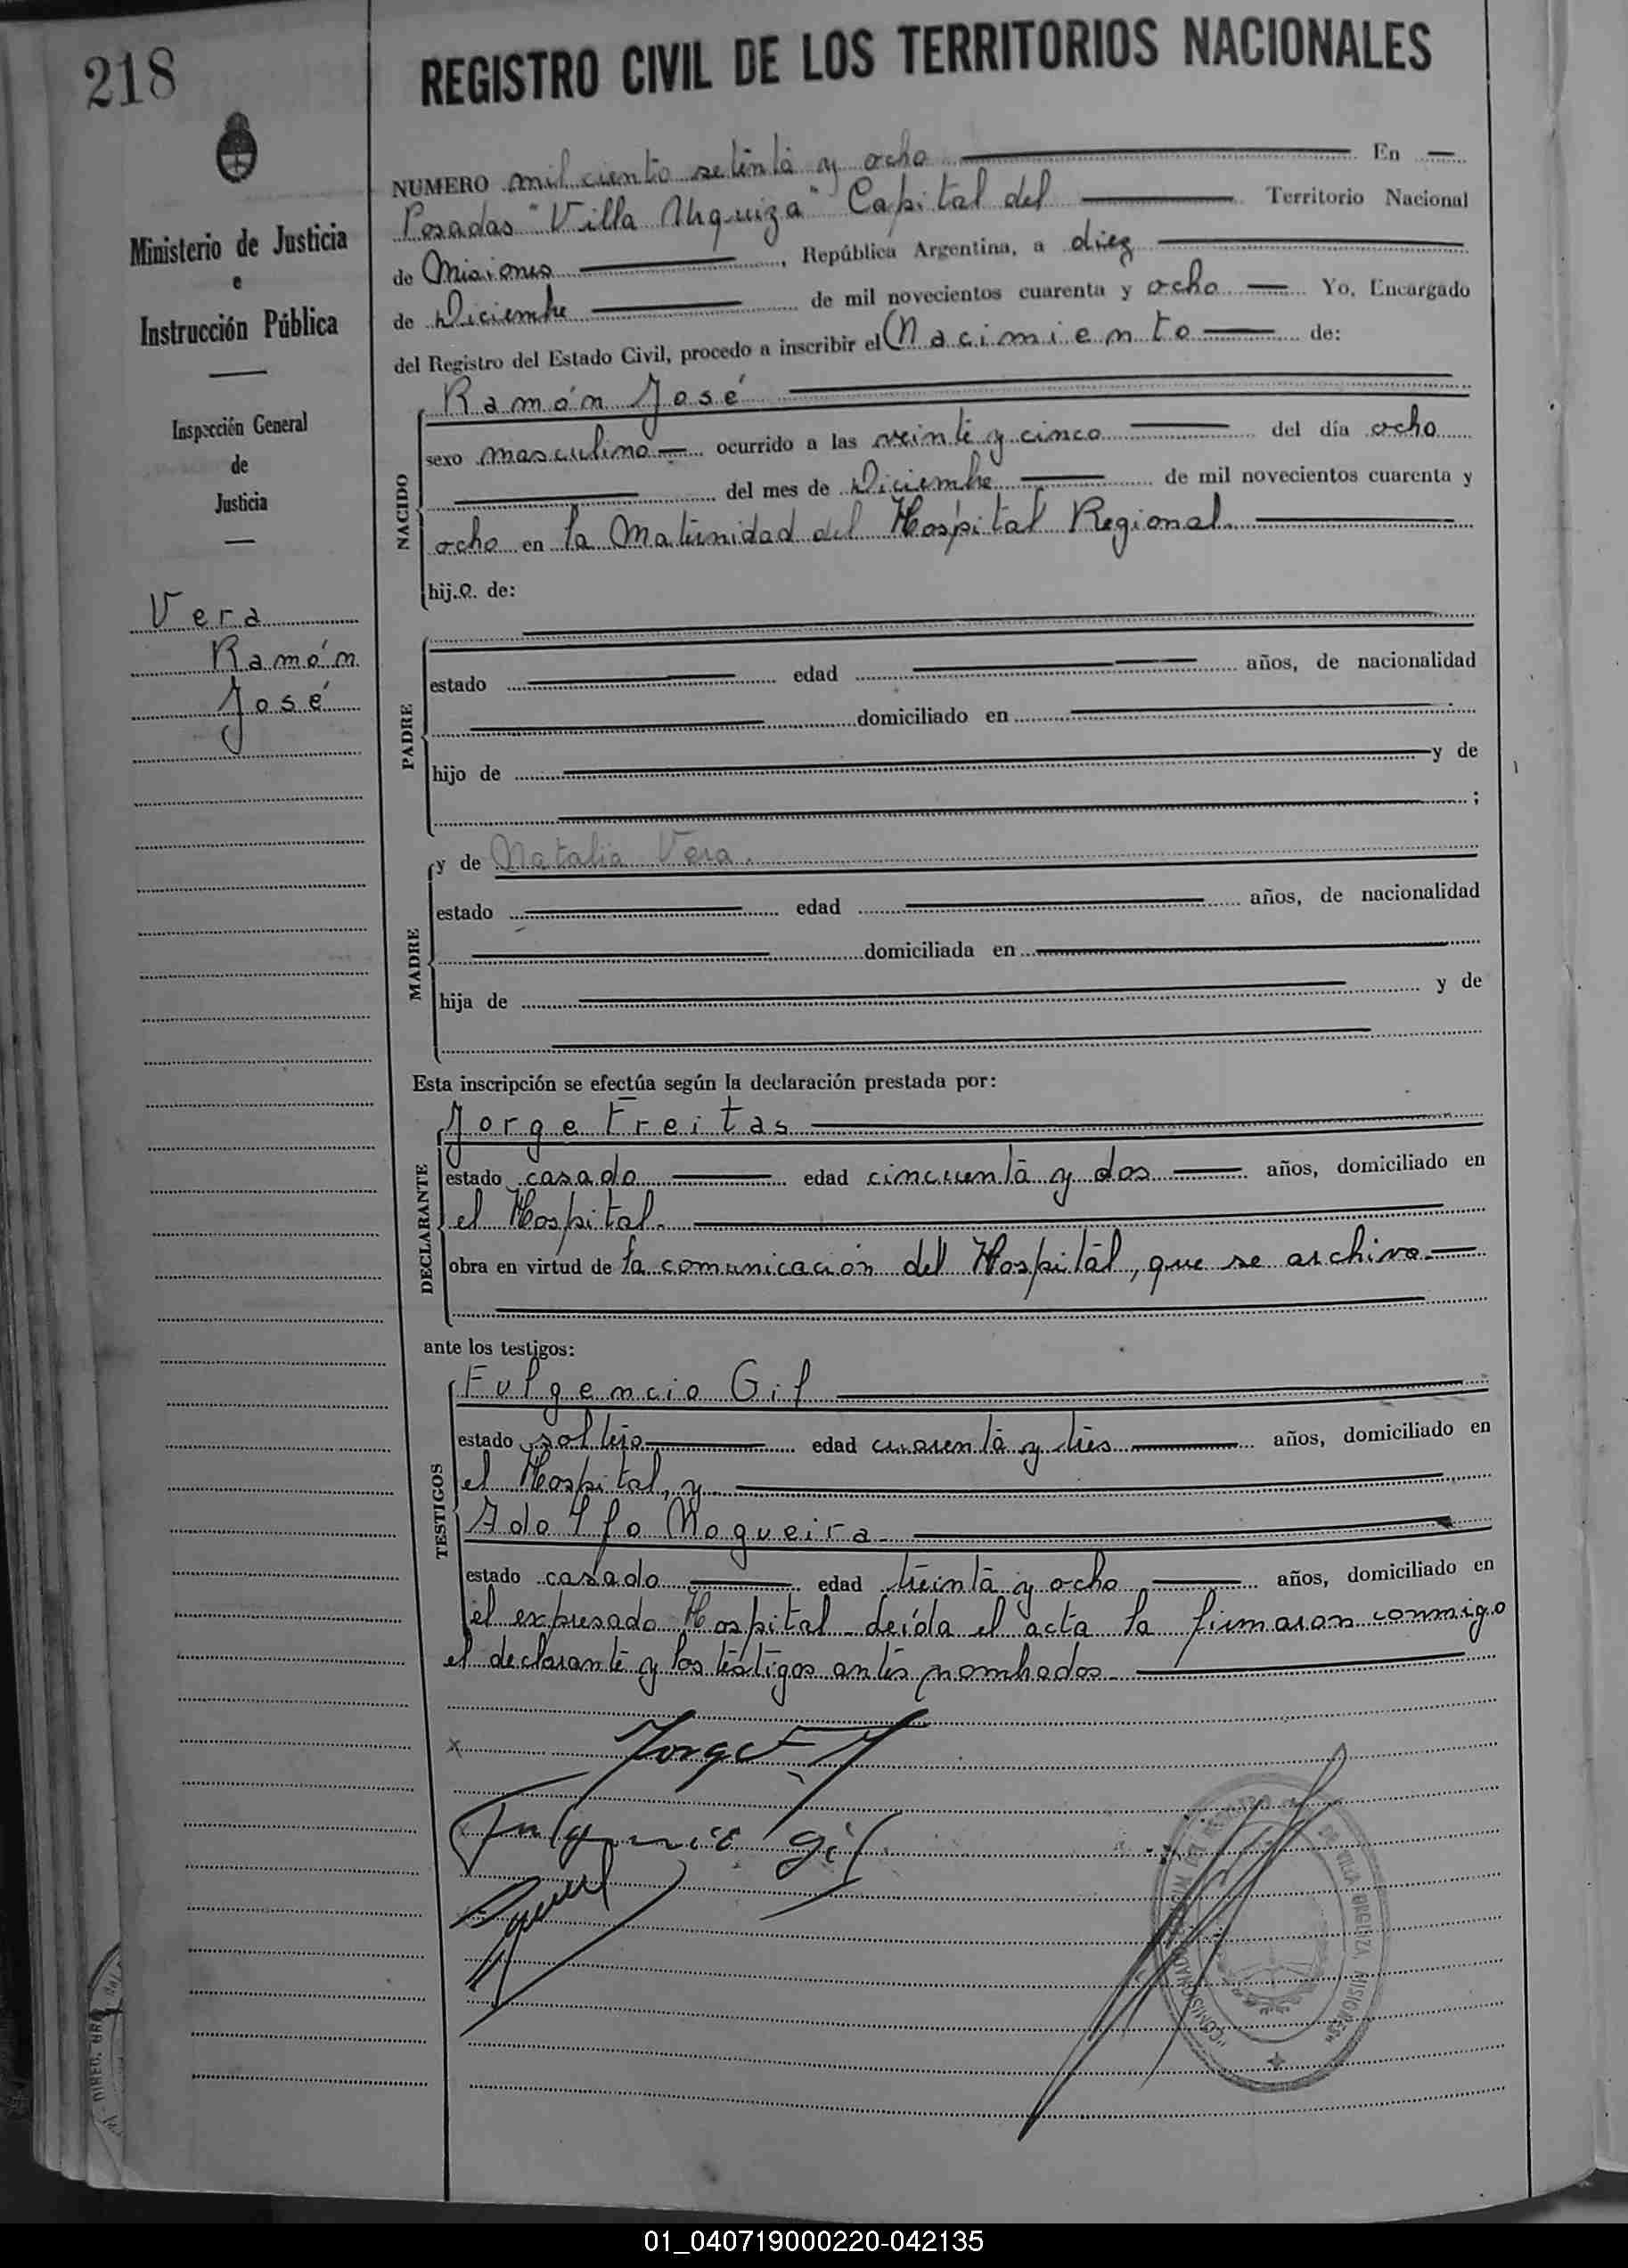 218
REGISTRO CIVIL DE LOS TERRITORIOS NACIONALES
Ministerio de Justicia
e
Instrucción Pública
Inspección General
de
Justicia
Vera
Ramón
José
NUMERO mil ciento setenta y ocho En
Posadas "Villa Urquiza" Capital del Territorio Nacional
de Misiones, República Argentina, a diez
de Diciembre de mil novecientos cuarenta y ocho Yo, Encargado
del Registro del Estado Civil, procedo a inscribir el Nacimiento de:
NACIDO
Ramón José
sexo masculino ocurrido a las veinte y cinco del día ocho
del mes de Diciembre de mil novecientos cuarenta y
ocho en la Maternidad del Hospital Regional.
hijo de:
PADRE
estado edad años, de nacionalidad
domiciliado en
hijo de y de
;
MADRE
y de Natalia Vera.
estado edad años, de nacionalidad
domiciliada en
hija de y de
Esta inscripción se efectúa según la declaración prestada por:
DECLARANTE
Jorge Freitas
estado casado edad cincuenta y dos años, domiciliado en
el Hospital.
obra en virtud de la comunicación del Hospital, que se archiva.
ante los testigos:
TESTIGOS
Fulgencio Gil
estado soltero edad cuarenta y tres años, domiciliado en
el Hospital, y
Adolfo Nogueira
estado casado edad treinta y ocho años, domiciliado en
el expresado Hospital. Leída el acta la firmaron conmigo
el declarante y los testigos antes nombrados.
x Jorge F
Fulgencio Gil
VILLA URQUIZA MISIONES
01_040719000220-042135